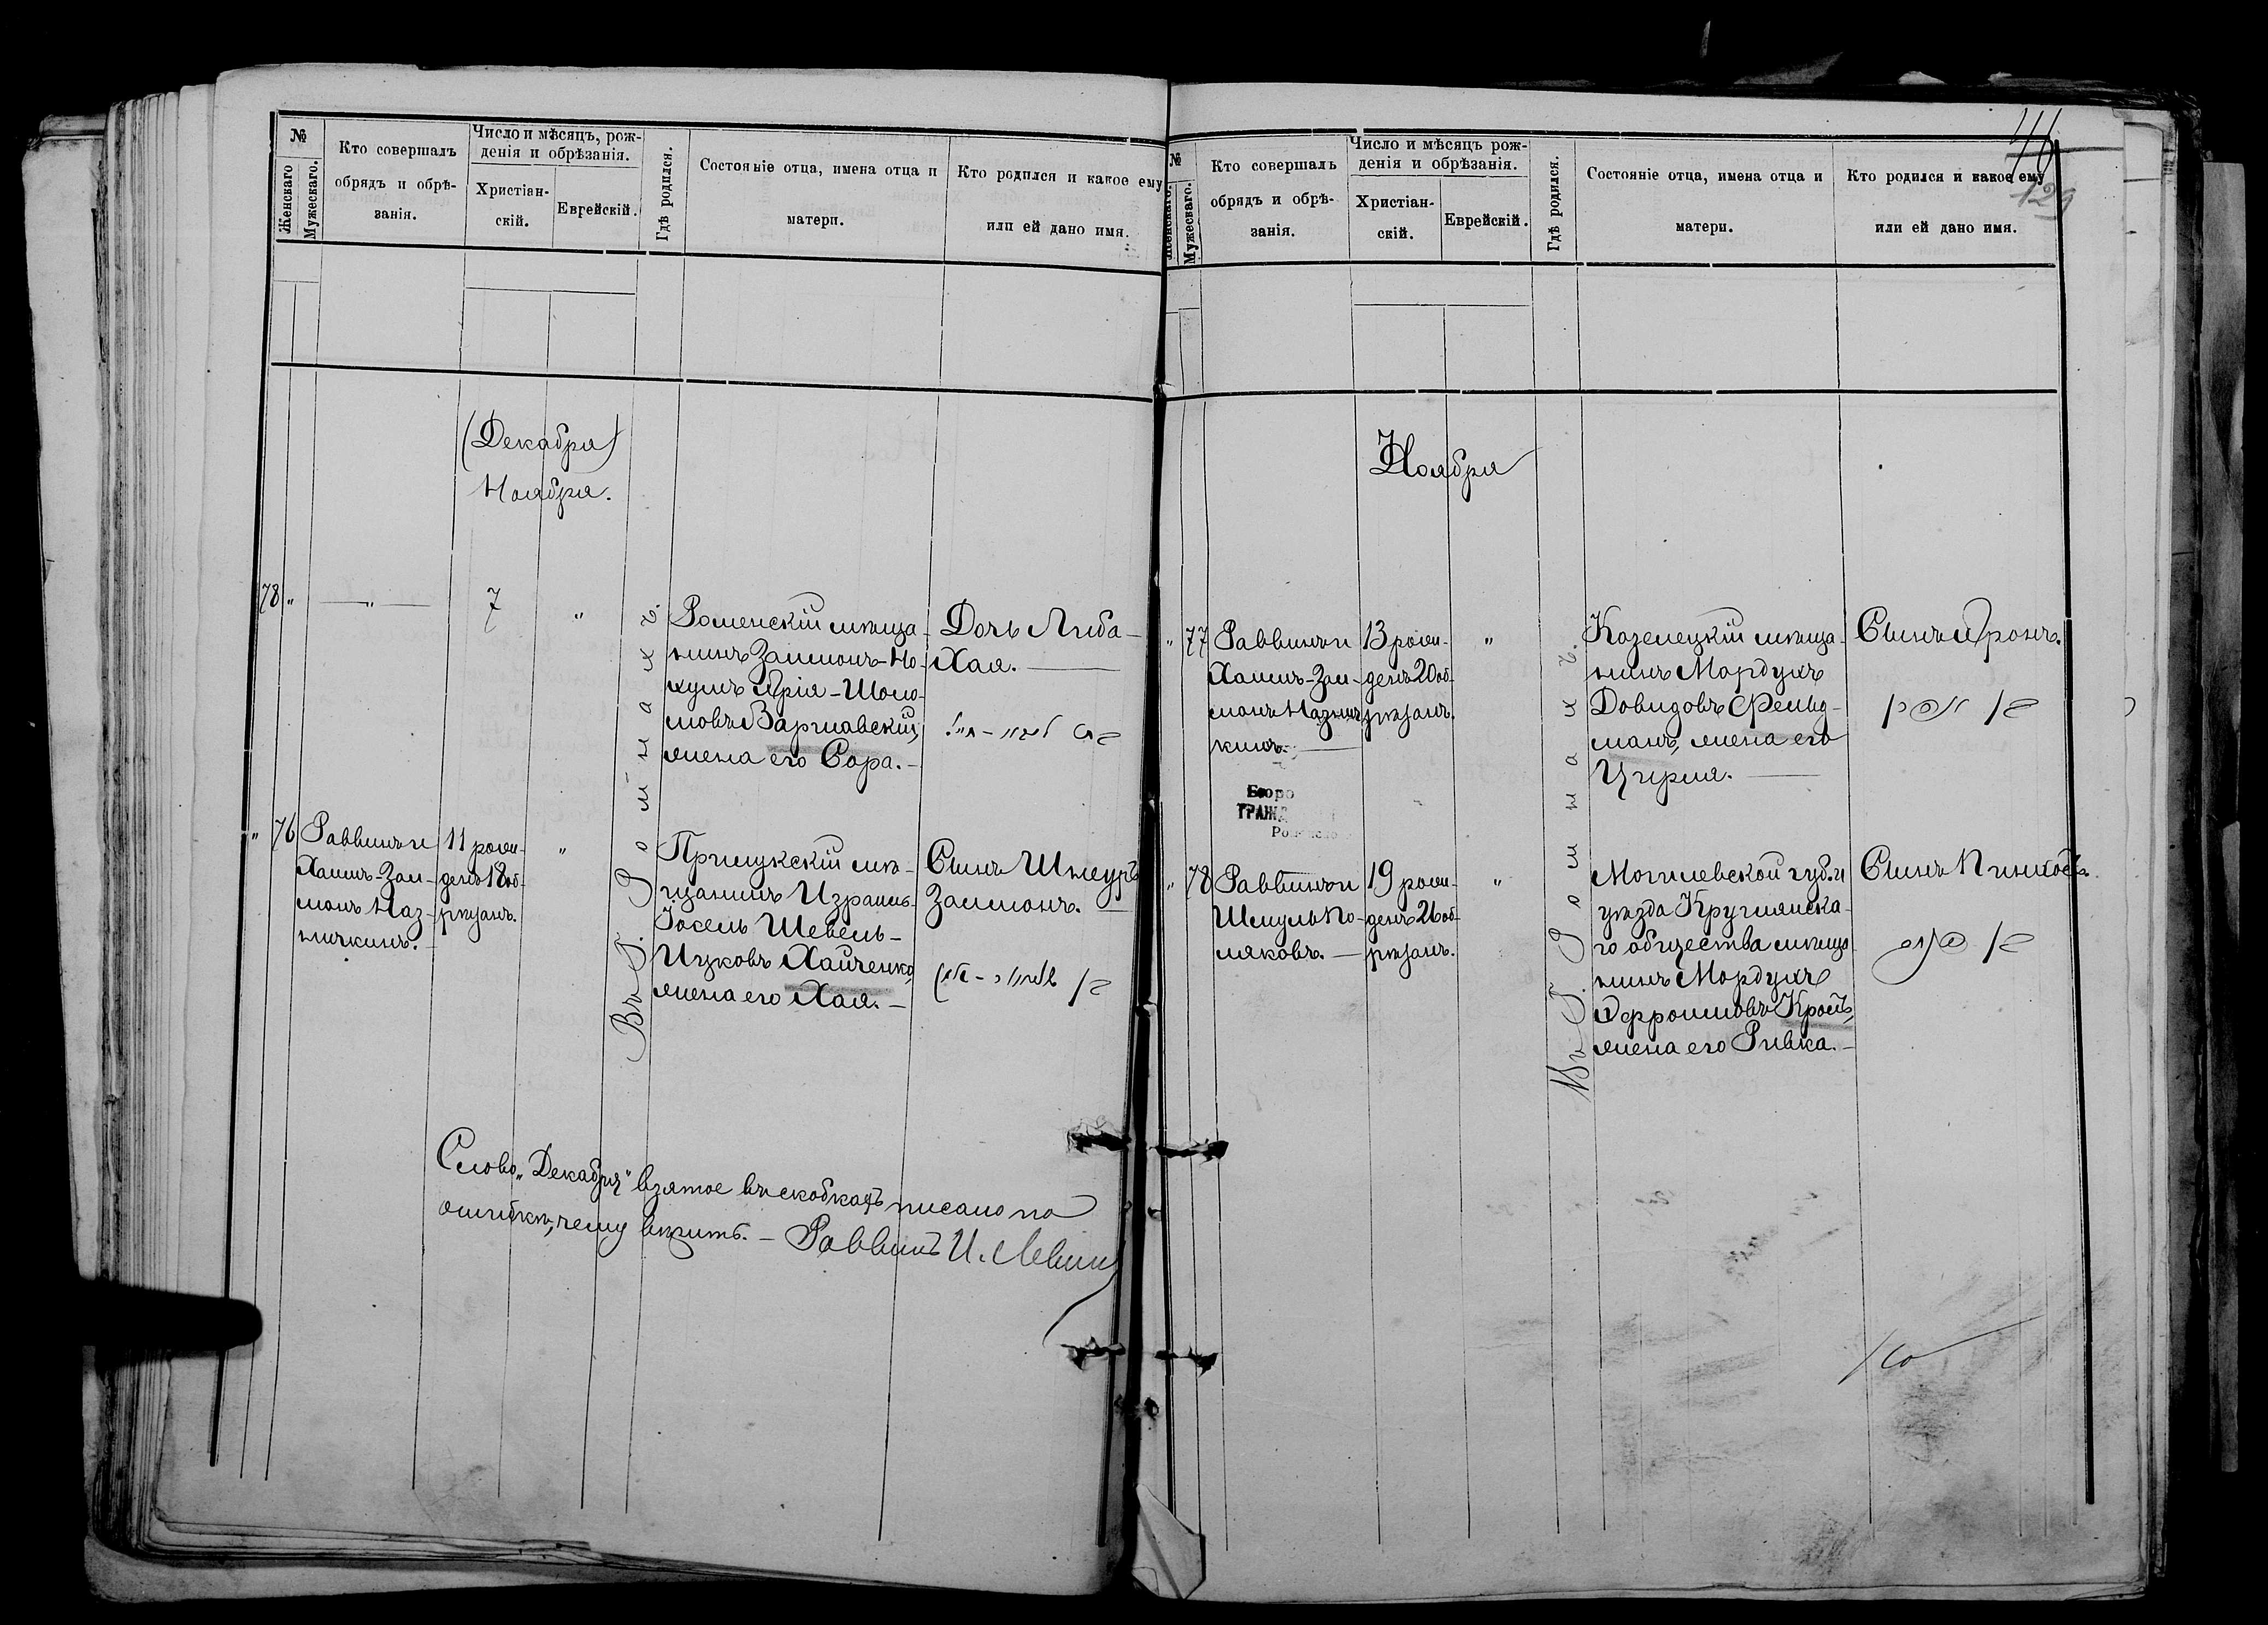 №
Женскаго
Мужескаго.
Кто совершалъ
обрядъ и обрѣ-
занія.
Число и мѣсяцъ, рож-
денія и обрѣзанія.
Христіан-
скій.
Еврейскій.
Гдѣ родился.
Состояніе отца, имена отца и
матери.
Кто родился и какое ему
или ей дано имя.
(Декабря)
Ноября.
78 "
— " —
7
"
Въ г. Ромнахъ.
Роменскій мѣща-
нинъ Залмонъ-Но-
хумъ Арія-Шоло-
мовъ Варшавскій,
жена его Сора. —
Дочь Либа-
Хая. —
" 76
Раввинъ и
Хаимъ-Зал-
монъ Наз-
ничкинъ. —
11 рож-
денъ 18 об-
рѣзанъ.
"
Прилукскій мѣ-
щанинъ Израиль-
Іосель Шевель-
Ицковъ Хайченко,
жена его Хая. —
Сынъ Шнеуръ
Залмонъ. —
Слово „Декабря" взятое въ скобкахъ писано по
ошибкѣ, чему вѣрить. — Раввинъ И. Левин
46
129
№
Женскаго.
Мужескаго.
Кто совершалъ
обрядъ и обрѣ-
занія.
Число и мѣсяцъ рож-
денія и обрѣзанія.
Христіан-
скій.
Еврейскій.
Гдѣ родился.
Состояніе отца, имена отца и
матери.
Кто родился и какое ему
или ей дано имя.
Ноября
" 77
Раввинъ и
Хаимъ-Зал-
монъ Назнич-
кинъ. —
13 рож-
денъ 20 об-
рѣзанъ.
"
Въ г. Ромнахъ.
Козелецкій мѣща-
нинъ Мордухъ
Довидовъ Фельд-
манъ, жена его
Цирля. —
Сынъ Аронъ.
בן אהרן
Бюро
ГРАЖД
" 78
Раввинъ и
Шмуль По-
ляковъ. —
19 рож-
денъ 26 об-
рѣзанъ.
"
Могилевской губ. и
уѣзда Круглянска-
го общества мѣща-
нинъ Мордухъ
Эфроимовъ
жена его Ривка. —
Сынъ Пинхосъ.